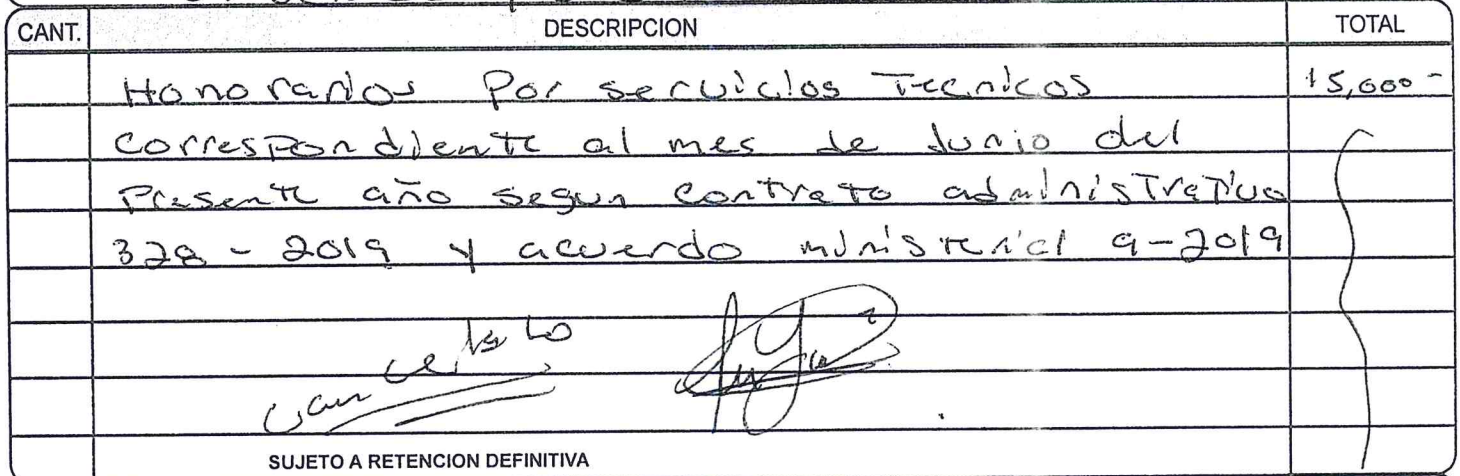 CANT. DESCRIPCION TOTAL
Honorarios Por servicios Tecnicos 15,000-
correspondiente al mes de Junio del
Presente año segun contrato administrativo
328-2019 y acuerdo ministerial 9-2019
cancelado
SUJETO A RETENCION DEFINITIVA